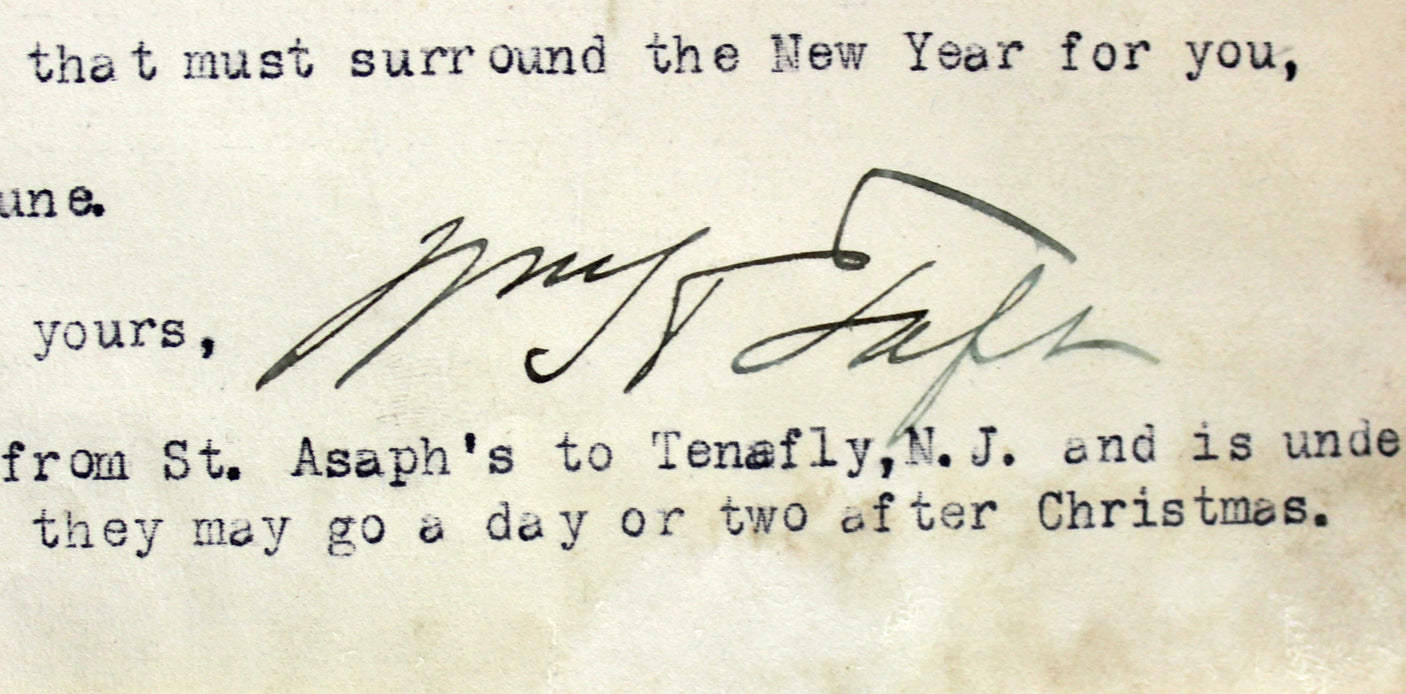 that must surround the New Year for you,
une.
Wm H Taft
yours,
from St. Asaph's to Tenafly, N. J. and is unde
they may go a day or two after Christmas.